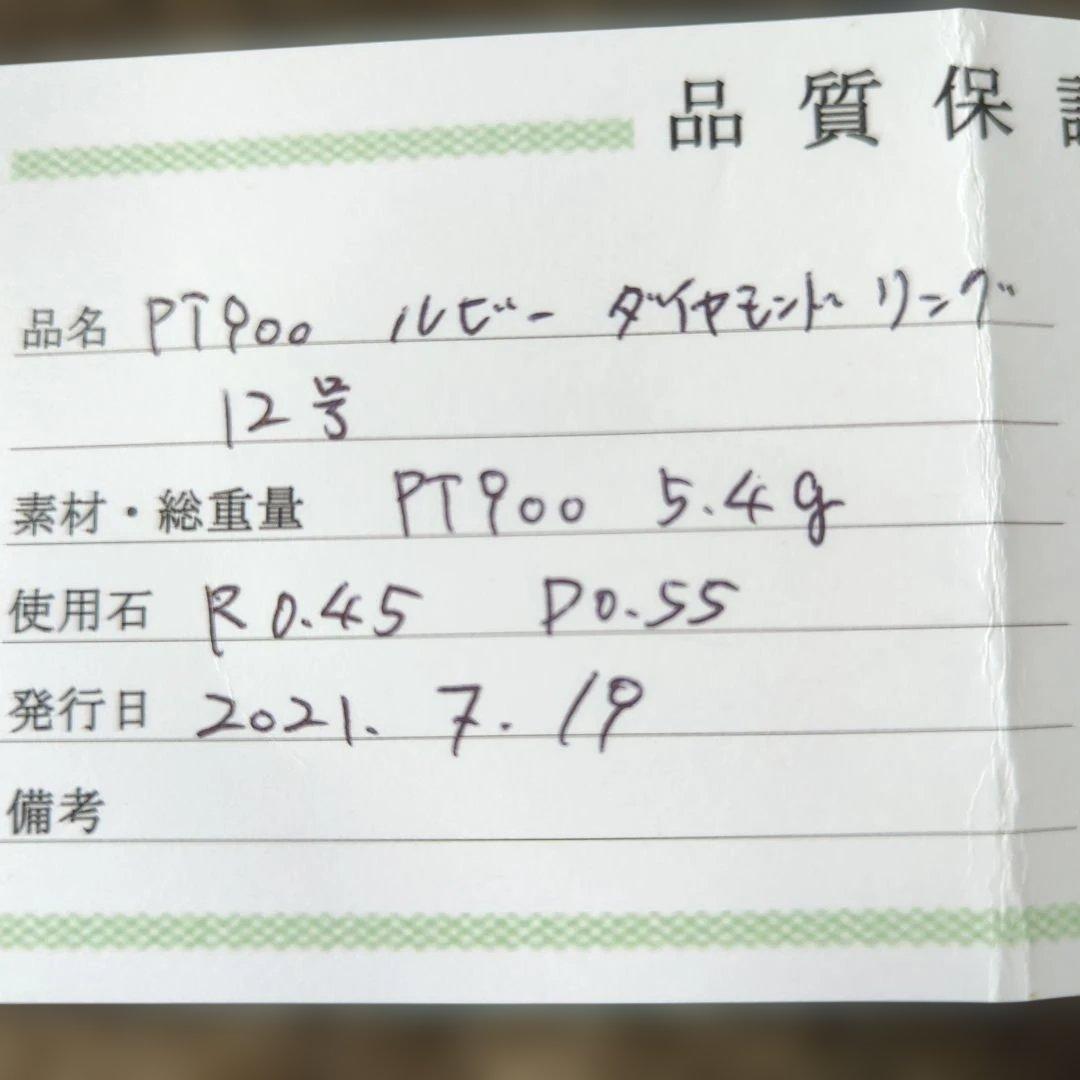 品質保証
品名 PT900 ルビー ダイヤモンド リング
12号
素材・総重量 PT900 5.4g
使用石 R 0.45 D0.55
発行日 2021. 7. 19
備考